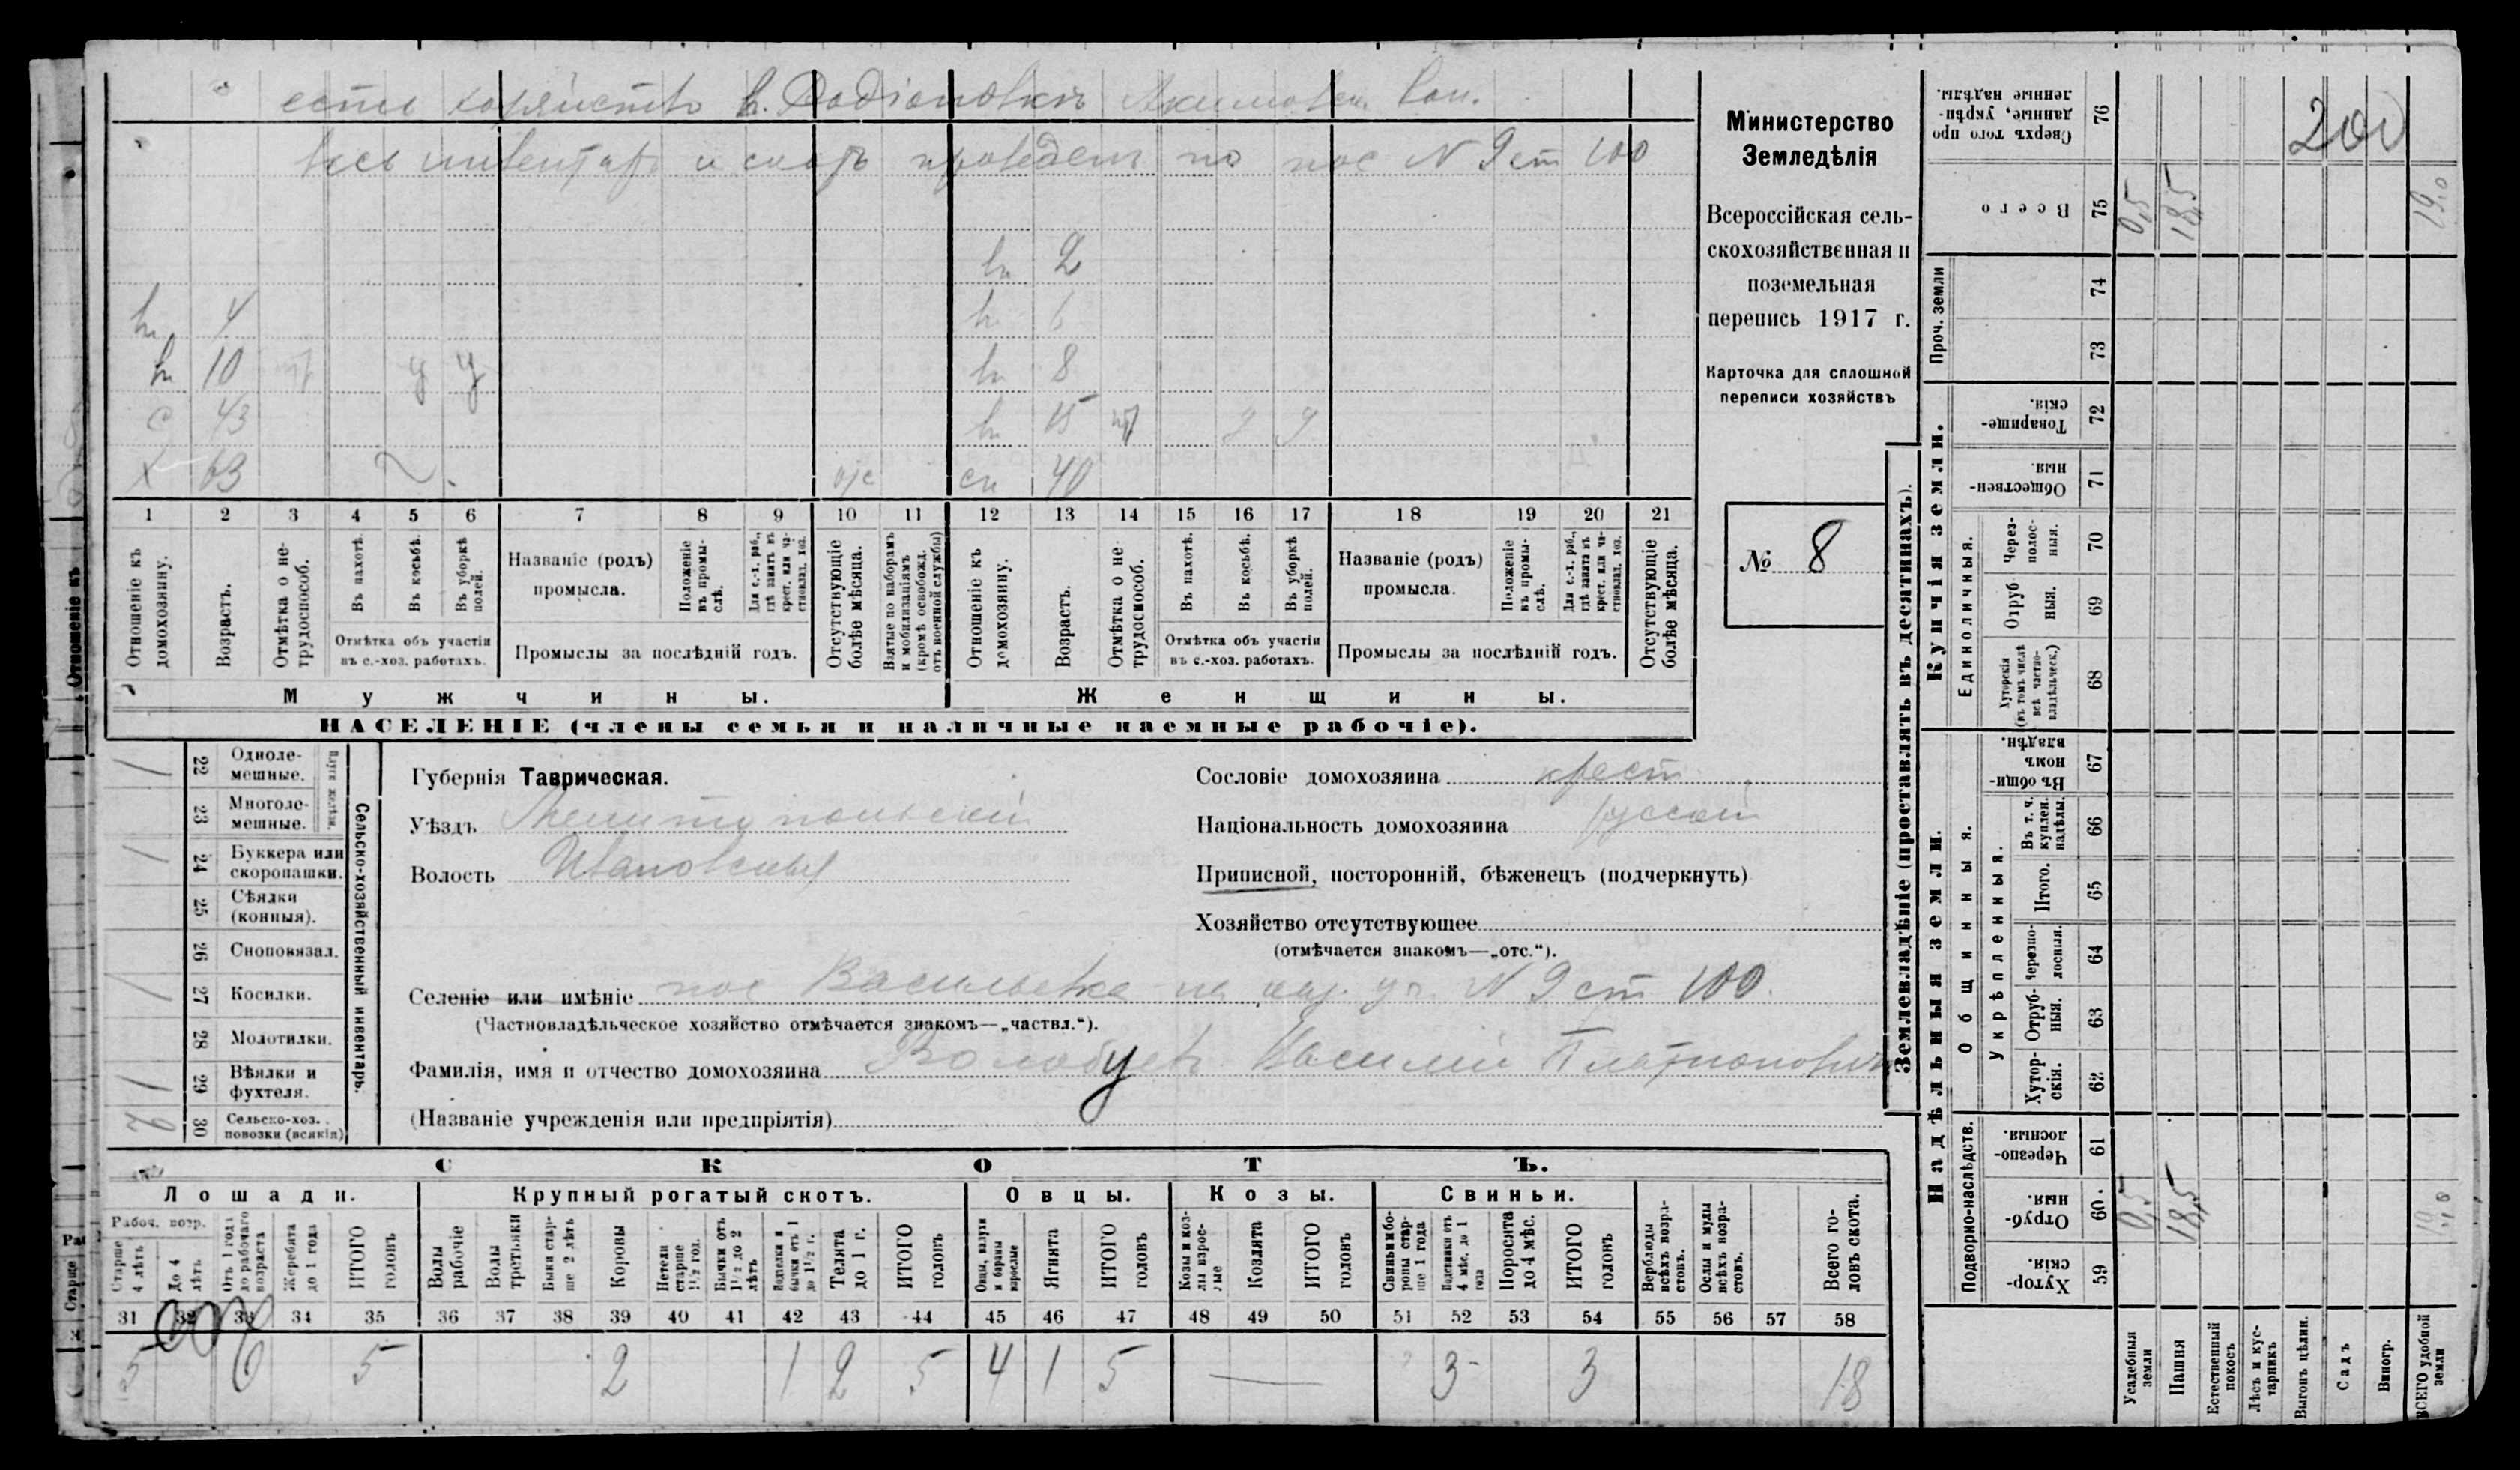 есть хозяйство в. Родіоновкѣ Акимовск. Вол.
весь инвентарь и скотъ проведен по пос N 9 ст 100
2
4 6
10 у у 8
с 43 15
х 63 40
1 2 3 4 5 6 7 8 9 10 11 12 13 14 15 16 17 18 19 20 21
Отношеніе къ домохозяину.
Возрастъ.
Отмѣтка о нетрудоспособ.
Въ пахотѣ.
Въ косьбѣ.
Въ уборкѣ полей.
Отмѣтка объ участіи въ с.-хоз. работахъ.
Названіе (родъ) промысла.
Положеніе въ промыслѣ.
Для с.-х. раб., гдѣ занятъ въ крест. или частновлад. хоз.
Промыслы за послѣдній годъ.
Отсутствующіе болѣе мѣсяца.
Взятые по наборамъ и мобилизаціямъ (кромѣ освобожд. отъ военной службы)
Отношеніе къ домохозяину.
Возрастъ.
Отмѣтка о нетрудоспособ.
Въ пахотѣ.
Въ косьбѣ.
Въ уборкѣ полей.
Отмѣтка объ участіи въ с.-хоз. работахъ.
Названіе (родъ) промысла.
Положеніе въ промыслѣ.
Для с.-х. раб., гдѣ занята въ крест. или частновлад. хоз.
Промыслы за послѣдній годъ.
Отсутствующіе болѣе мѣсяца.
Мужчины. Женщины.
НАСЕЛЕНІЕ (члены семьи и наличные наемные рабочіе).
Министерство
Земледѣлія
Всероссійская сель-
скохозяйственная и
поземельная
перепись 1917 г.
Карточка для сплошной
переписи хозяйствъ
№ 8
22 Одноле-мешные.
23 Многоле-мешные.
Плуги желѣзн.
24 Буккера или скоропашки.
25 Сѣялки (конныя).
26 Сноповязал.
27 Косилки.
28 Молотилки.
29 Вѣялки и фухтеля.
30 Сельско-хоз. повозки (всякія)
Сельско-хозяйственный инвентарь.
Губернія Таврическая.
Уѣздъ Мелитопольскій
Волость Ивановская
Сословіе домохозяина крест.
Національность домохозяина русскій
Приписной, посторонній, бѣженецъ (подчеркнуть)
Хозяйство отсутствующее
(отмѣчается знакомъ—„отс.“).
Селеніе или имѣніе пос Васильевка на N 9 ст 100.
(Частновладѣльческое хозяйство отмѣчается знакомъ—„частвл.“).
Фамилія, имя и отчество домохозяина Волобуевъ Василій Платоновичъ
(Названіе учрежденія или предпріятія)
СКОТЪ.
Лошади. Крупный рогатый скотъ. Овцы. Козы. Свиньи.
Рабоч. возр.
Старше 4 лѣтъ
До 4 лѣтъ
Отъ 1 года до рабочаго возраста
Жеребята до 1 года
ИТОГО головъ
Волы рабочіе
Волы третьяки
Быки старше 2 лѣтъ
Коровы
Нетели старше 1½ год.
Бычки отъ 1½ до 2 лѣтъ
Подтелки и бычки отъ 1 до 1½ г.
Телята до 1 г.
ИТОГО головъ
Овцы, валухи и бараны взрослые
Ягнята
ИТОГО головъ
Козы и козлы взрослые
Козлята
ИТОГО головъ
Свиньи боровы старше 1 года
Подсвинки отъ 4 мѣс. до 1 года
Поросята до 4 мѣс.
ИТОГО головъ
Верблюды всѣхъ возрастовъ.
Ослы и мулы всѣхъ возрастовъ.
Всего головъ скота.
31 32 33 34 35 36 37 38 39 40 41 42 43 44 45 46 47 48 49 50 51 52 53 54 55 56 57 58
5 5 2 1 2 5 4 1 5 — 3 3 18
Землевладѣніе (проставлять въ десятинахъ).
76 Сверхъ того проданные, укрѣпленные надѣлы.
200
75 Всего 0,5 18,5 19,0
Проч. земли 74 73
Купчія земли.
72 Товарищескія.
71 Общественныя.
Единоличныя.
70 Через-полос-ныя.
69 Отрубныя.
68 Хуторскія (въ томъ числѣ всѣ частновладѣльческ.)
Надѣльныя земли.
Общинныя.
67 Въ общинномъ владѣн.
Укрѣпленныя.
66 Въ т. ч. куплен. надѣлы.
65 Итого.
64 Черезполосныя.
63 Отруб-ныя.
62 Хутор-скія.
Подворно-наслѣдств.
61 Черезполосныя.
60. Отруб-ныя. 0,5 18,5 19,0
59 Хутор-скія.
Усадебныя земли
Пашня
Естественный покосъ
Лѣсъ и кустарникъ
Выгонъ цѣлин.
Садъ
Виногр.
ВСЕГО удобной земли